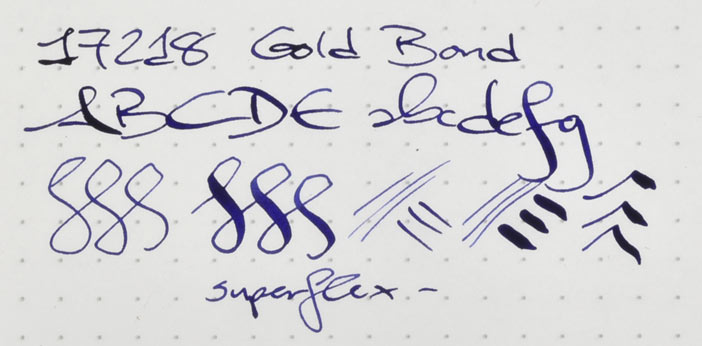 17218 Gold Bond
ABCDE abcdefg
superflex -